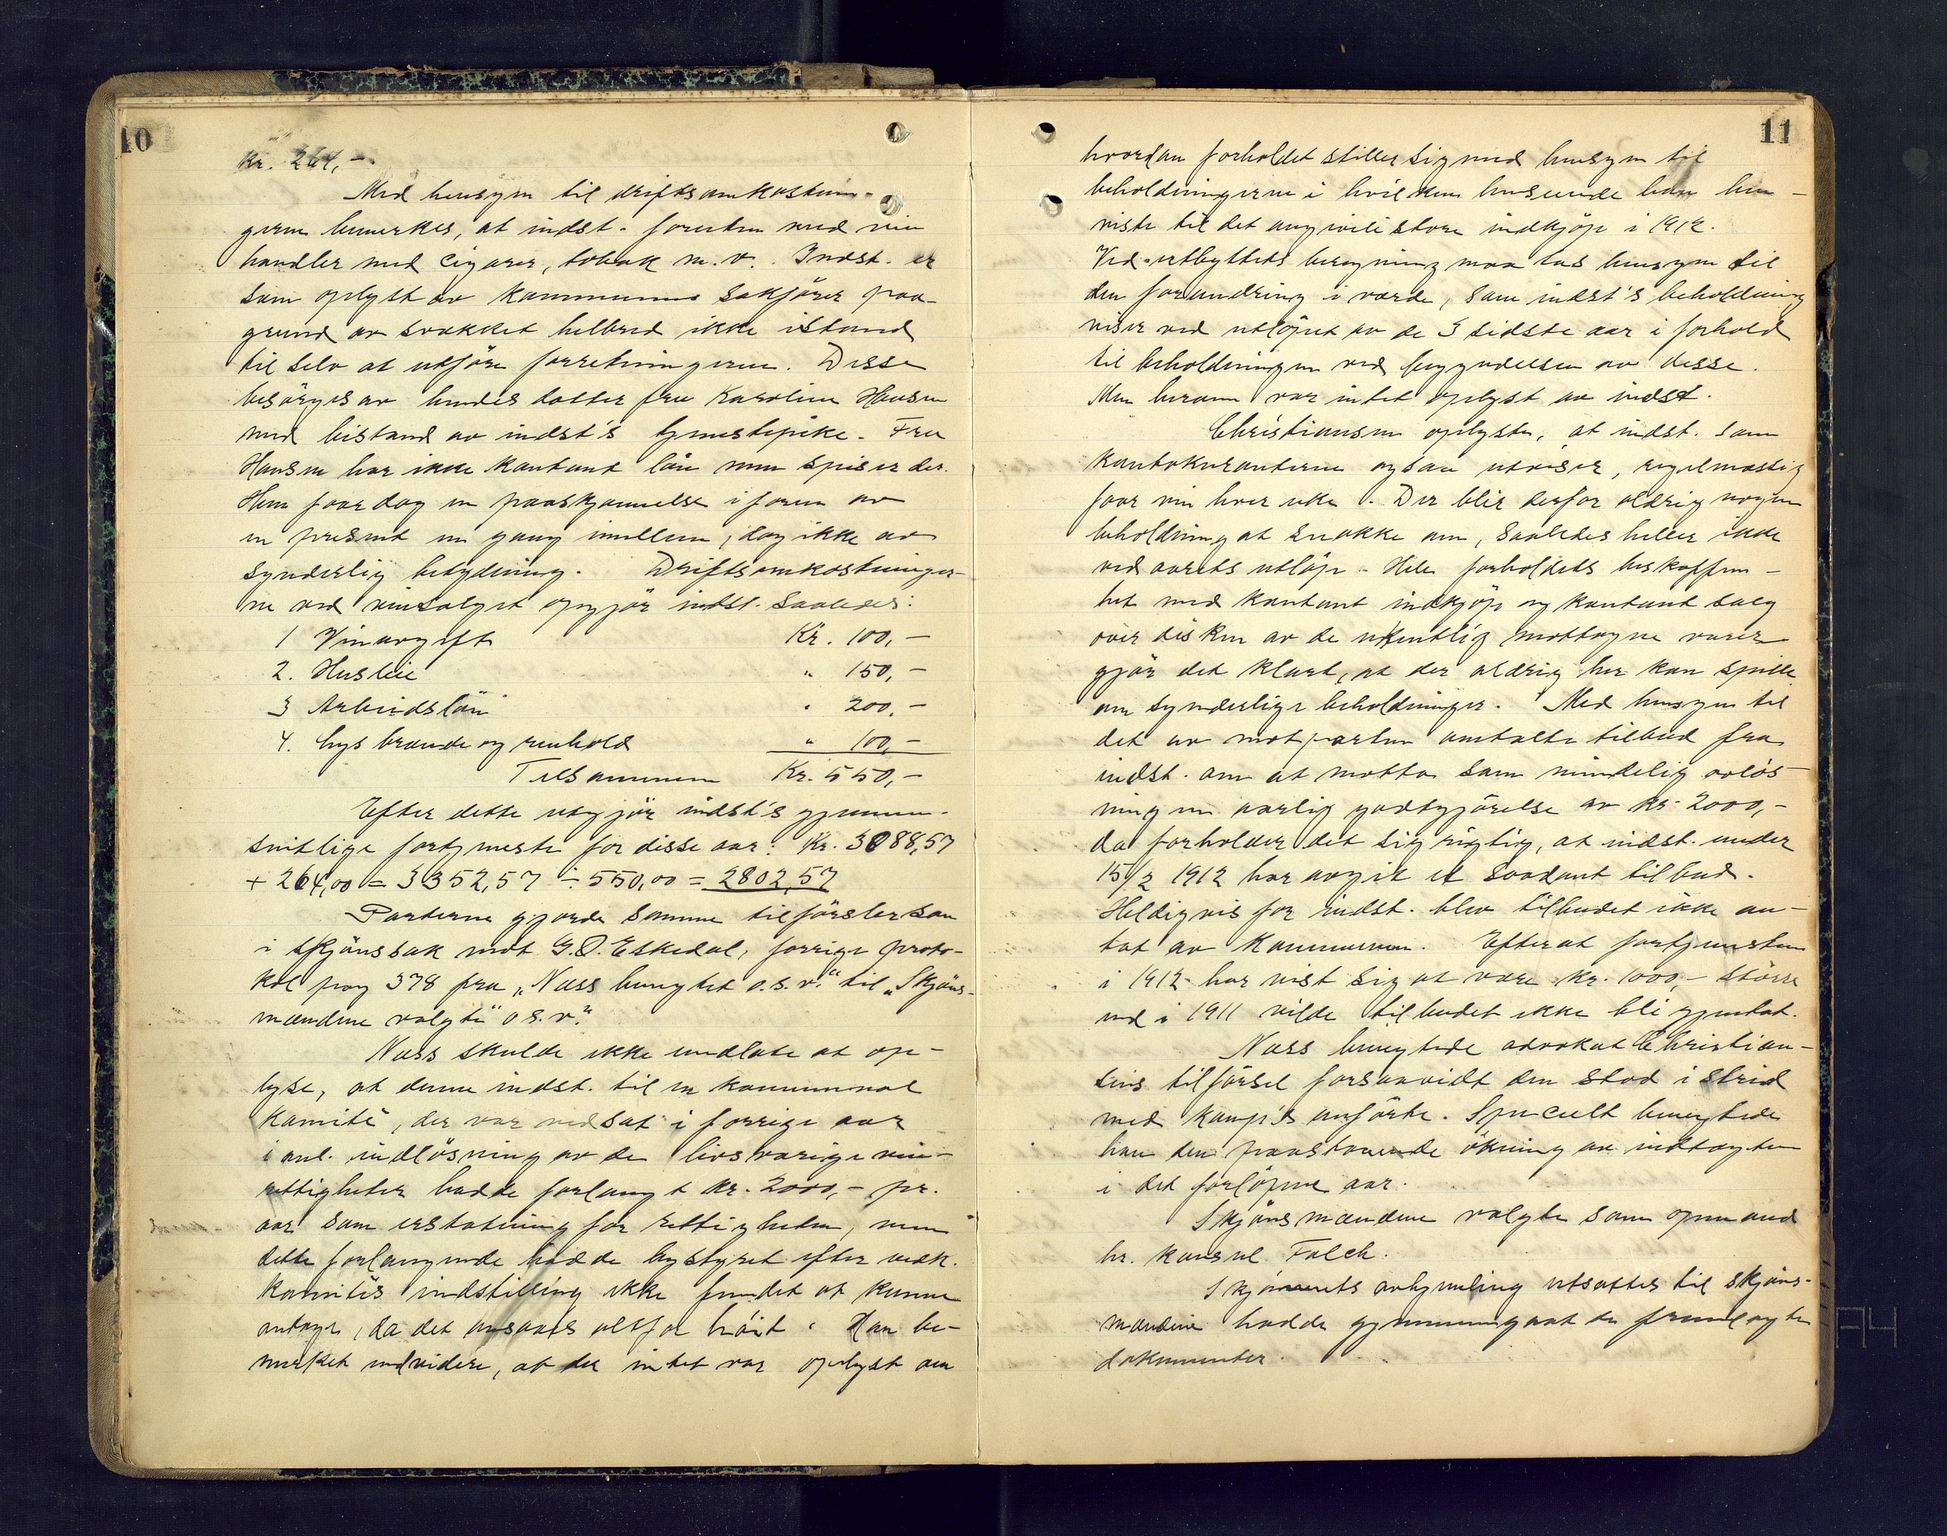 10
Kr. 264,-
Med hensyn til driftsomkostnin-
gerne bemerkes, at indst. foruten med vin
handler med cigarer, tobak m. v. Indst. er
som oplyst av kommunens sakfører paa-
grund av svækket helbred ikke istand
til selv at utføre forretningerne. Disse
besørges av hendes datter fru Karoline Hansen
med bistand av indst's tjenestepike. Fru
Hansen har ikke kontant løn men spiser der.
Hun faar dog en paaskjønnelse i form av
en presént en gang imellem, dog ikke av
synderlig betydning. Driftsomkostninger-
ne ved vinsalget opgjør indst. saaledes:
1 Vinavgift Kr. 100,-
2. Husleie " 150,-
3 Arbeidsløn " 200,-
4. Lys brænde og renhold " 100,-
Tilsammen Kr. 550,-
Efter dette utgjør indst's gjennem-
snitlige fortjeneste for disse aar: Kr. 3088,57
+ 264,00 = 3352,57 ÷ 550,00 = 2802,57
Parterne gjorde samme tilførsler som
i skjønssak mot G. O. Eskedal, forrige proto-
kol pag 378 fra „Næss benegtet o.s.v." til „Skjøns-
mændene valgte" o s. v."
Næss skulde ikke undlate at op-
lyse, at denne indst. til en kommunal
komité, der var nedsat i forrige aar
i anl. indløsning av de livsvarige vin-
rettigheter hadde forlangt kr. 2000,- pr.
aar som erstatning for rettigheten, men
dette forlangende hadde bystyret efter vedk.
komités indstilling ikke fundet at kunne
antage, da det ansaaes altfor høit. Han be-
merket endvidere, at der intet var oplyst om
11
hvordan forholdet stiller sig med hensyn til
beholdningerne i hvilken henseende han hen-
viste til det angivelig store indkjøp i 1912.
Ved utbyttets beregning maa tas hensyn til
den forandring i værdi, som indst's beholdning
viser ved utløpet av de 3 sidste aar i forhold
til beholdningen ved begyndelsen av disse.
Men herom var intet oplyst av indst.
Christiansen oplyste, at indst. som
kontokuranterne ogsaa utviser, regelmæssig
faar vin hver uke. Der blir derfor aldrig nogen
beholdning at snakke om, saaledes heller ikke
ved aarets utløp. Hele forholdets beskaffen-
het med kontant indkjøp og kontant salg
over disken av de ukentlig mottagne varer
gjør det klart, at der aldrig her kan spilles
om synderlige beholdninger. Med hensyn til
det av motparten omtalte tilbud fra
indst. om at motta som mindelig avløs-
ning en aarlig godtgjørelse av kr. 2000,-
da forholder det sig rigtig, at indst. under
15/2 1912 har avgit et saadant tilbud.
Heldigvis for indst. blev tilbudet ikke an-
tat av kommunen. Efterat fortjenesten
i 1912 har vist sig at være kr. 1000,- større
end i 1911 vilde tilbudet ikke bli gjentat.
Næss benegtede advokat Christian-
sens tilførsel forsaavidt den stod i strid
med komp's anførte. Specielt benegtede
han den paastaaende økning av indtægten
i det forløpne aar.
Skjønsmændene valgte som opmand
hr. konsul Falch.
Skjønnets avhjemling utsattes til skjøns-
mændene hadde gjennemgaat de fremlagte
dokumenter.